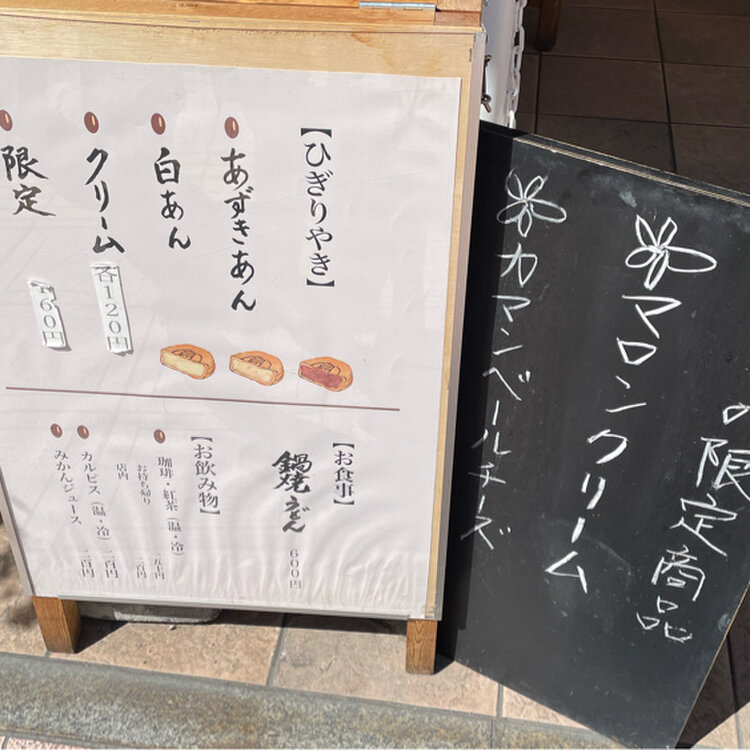 【ひぎりやき】
あずきあん
白あん
クリーム
各120円
限定
160円
【お食事】
鍋焼うどん
600円
【お飲み物】
珈琲・紅茶（温・冷）
お持ち帰り
店内
カルピス（温・冷）
二百円
みかんジュース
二百円
の限定商品
マロンクリーム
カマンベールチーズ